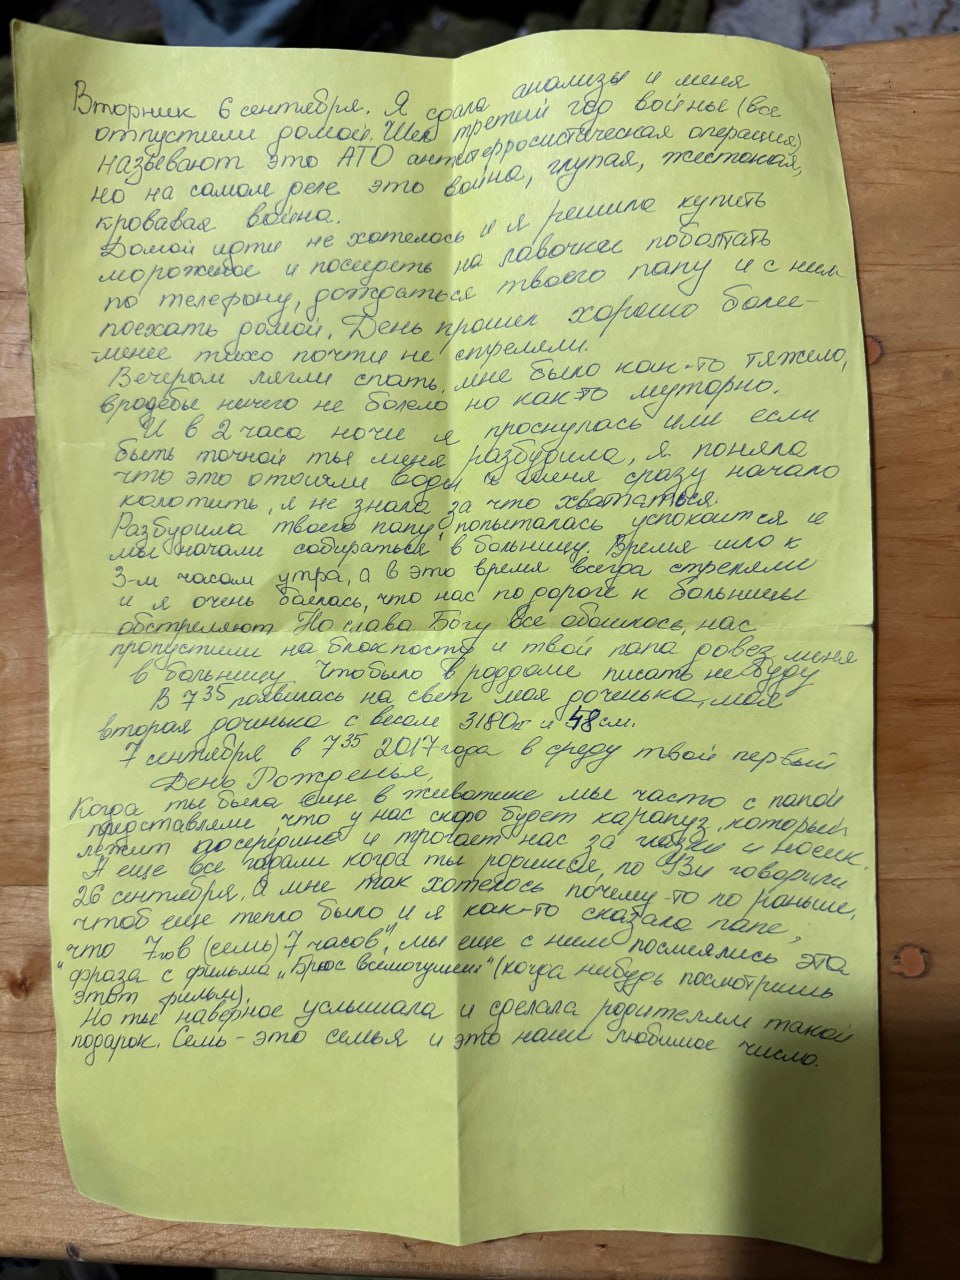 Вторник 6 сентября. Я сдала анализы и меня
отпустили домой. Шел третий год войны (все
называют это АТО антитеррористическая операция)
но на самом деле это война, глупая, жестокая,
кровавая война.
Домой идти не хотелось и я решила купить
мороженое и посидеть на лавочке поболтать
по телефону, дождаться твоего папу и с ним
поехать домой. День прошел хорошо более-
менее тихо почти не стреляли.
Вечером легли спать, мне было как-то тяжело,
вродебы ничего не болело но как то муторно.
И в 2 часа ночи я проснулась или если
быть точной ты меня разбудила, я поняла
что это отошли воды и меня сразу начало
колотить, я не знала за что хвататься.
Разбудила твоего папу, попыталась успокоится и
мы начали собираться в больницу. Время шло к
3-м часам утра, а в это время всегда стреляли
и я очень боялась, что нас по дороге к больницы
обстреляют. Но слава Богу все обошлось, нас
пропустили на блокпосту и твой папа довез меня
в больницу. Что было в роддоме писать не буду
В 7³⁵ появилась на свет моя доченька, моя
вторая доченька с весом 3180 и 48 см.
7 сентября в 7³⁵ 2017 года в среду твой первый
День Рожденья.
Когда ты была еще в животике мы часто с папой
представляли что у нас скоро будет карапуз, который
лежит посередине и трогает нас за глазки и носик.
А еще все гадали когда ты родишся, по УЗИ говорили
26 сентября, а мне так хотелось почему-то по раньше,
чтоб еще тепло было и я как-то сказала папе,
что "7го в (семь) 7 часов", мы еще с ним посмеялись эта
фраза с фильма „Брюс всемогущий" (когда нибудь посмотришь
этот фильм).
Но ты наверное услышала и сделала родителям такой
подарок. Семь - это семья и это наши любимое число.